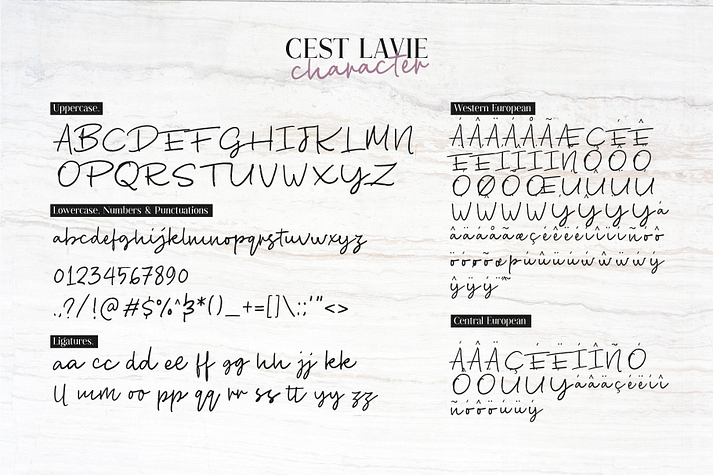 CEST LAVIE
character
Uppercase.
ABCDEFGHIJKLMN
OPQRSTUVWXYZ
Lowercase, Numbers & Punctuations
abcdefghijklmnopqrstuvwxyz
01234567890
.,?/!@#$%^&*()_+=[]\:;'"<>
Ligatures.
aa cc dd ee ff gg hh jj kk
ll mm oo pp qq rr ss tt yy zz
Western European
ÁÂÄÀÅÃÆÇÉÊ
ËÈÍÎÏÌÑÓÔÖ
ÒØÕŒÚÛÜÙ
ẂŴẄẀÝŶŸỲá
âäàåãæçéêëèíîïìñóô
Central European
ÁÂÄÇÉËÍÎÓ
ÓÔÖÚÜÝáâäçéëíî